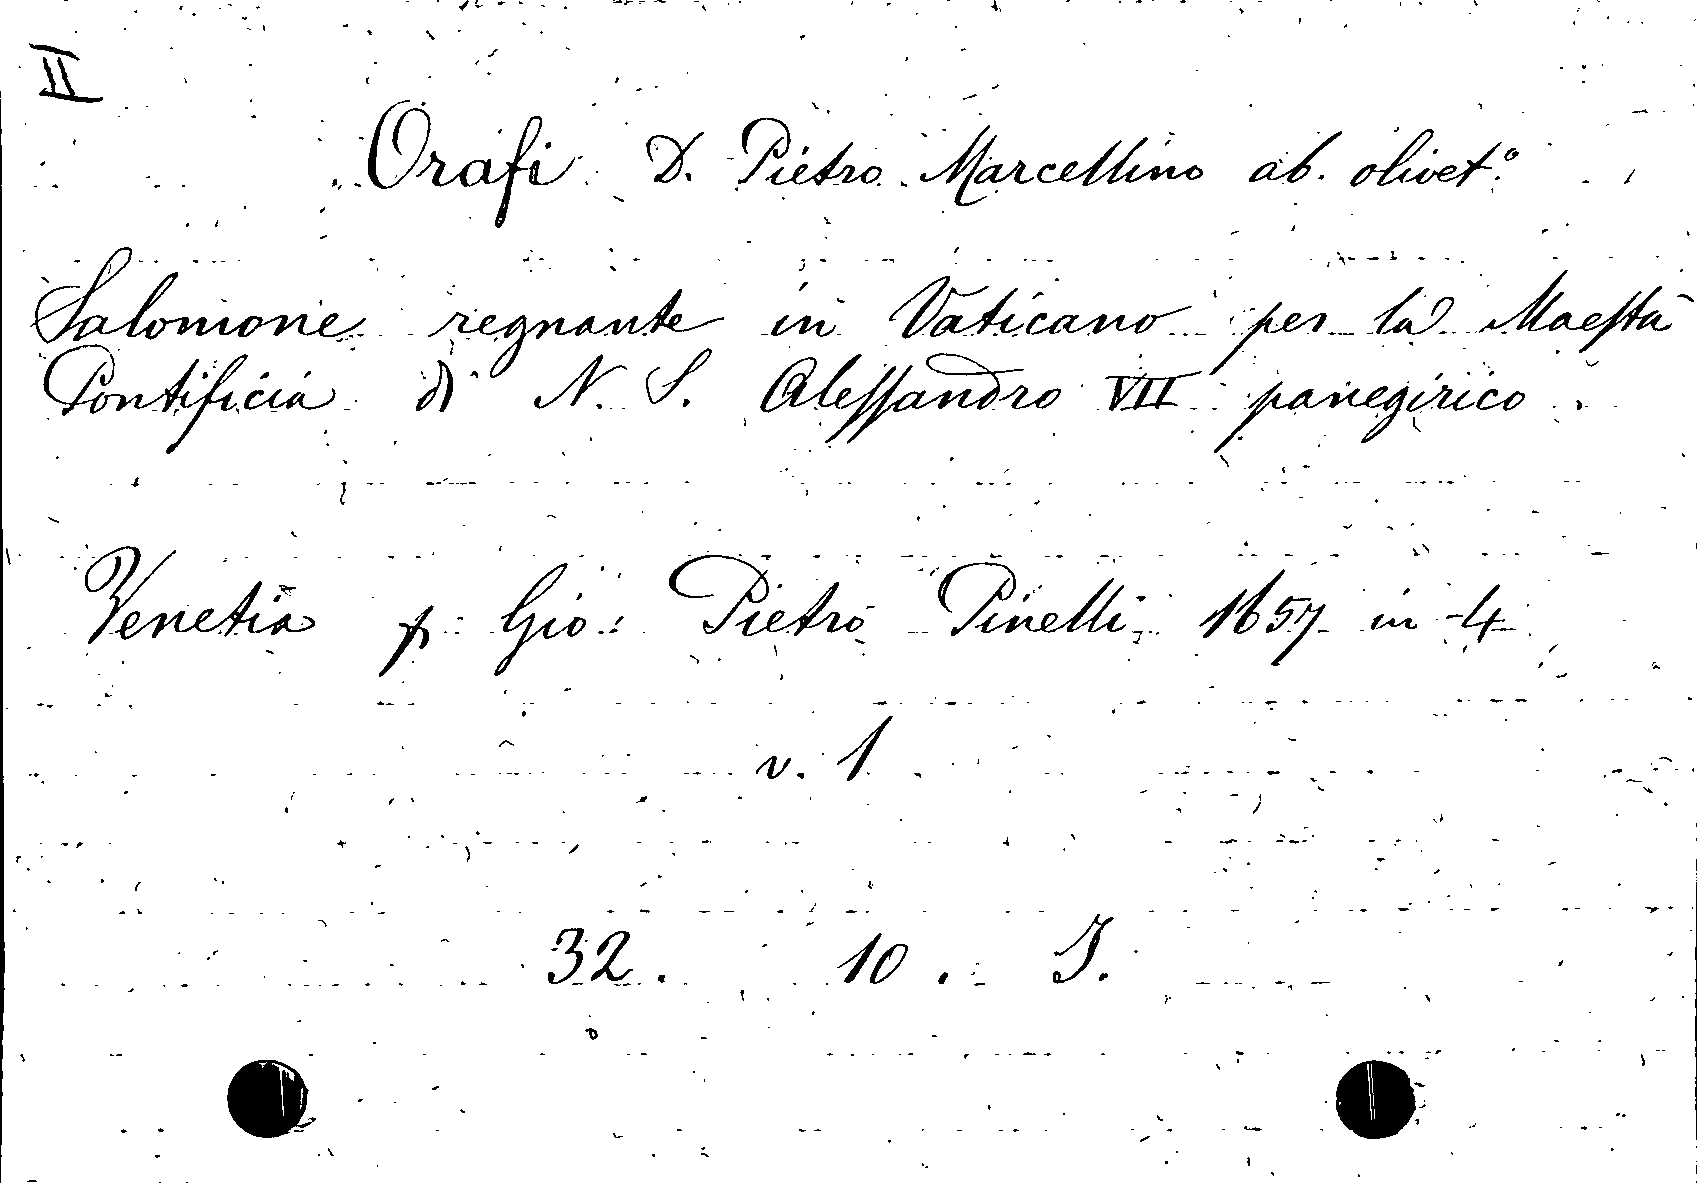 II
Orafi D. Pietro Marcellino ab. olivet.º
Salomone regnante in Vaticano per la Maestà
Pontificia di N. S. Alessandro VII panegirico
Venetia p Gio: Pietro Pinelli 1657 in 4
v. 1
32. 10. I.